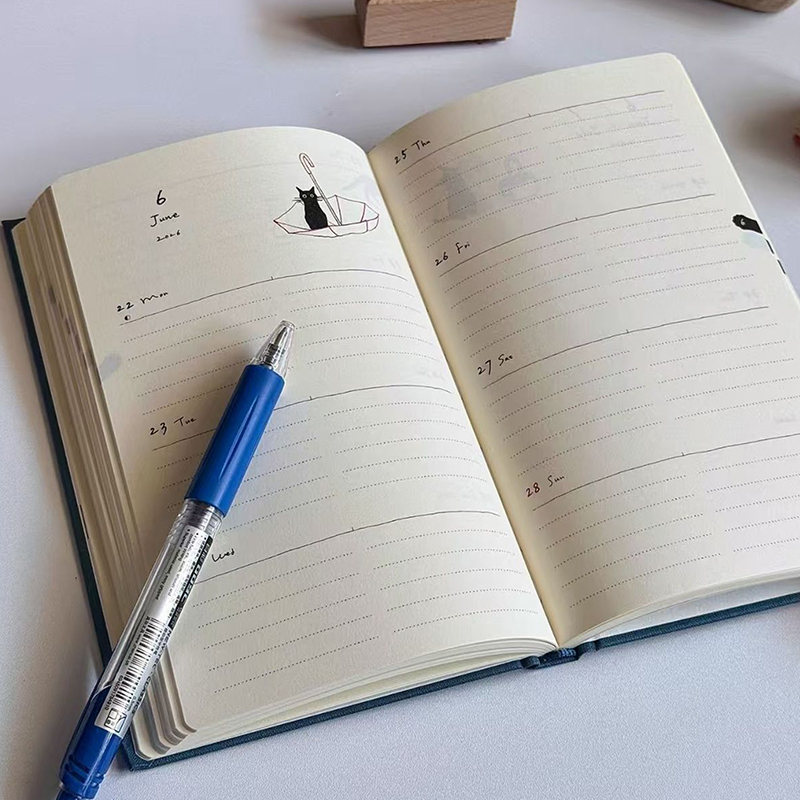 6
June
2026
22 Mon
23 Tue
Wed
25 Thu
26 Fri
27 Sat
28 Sun
6